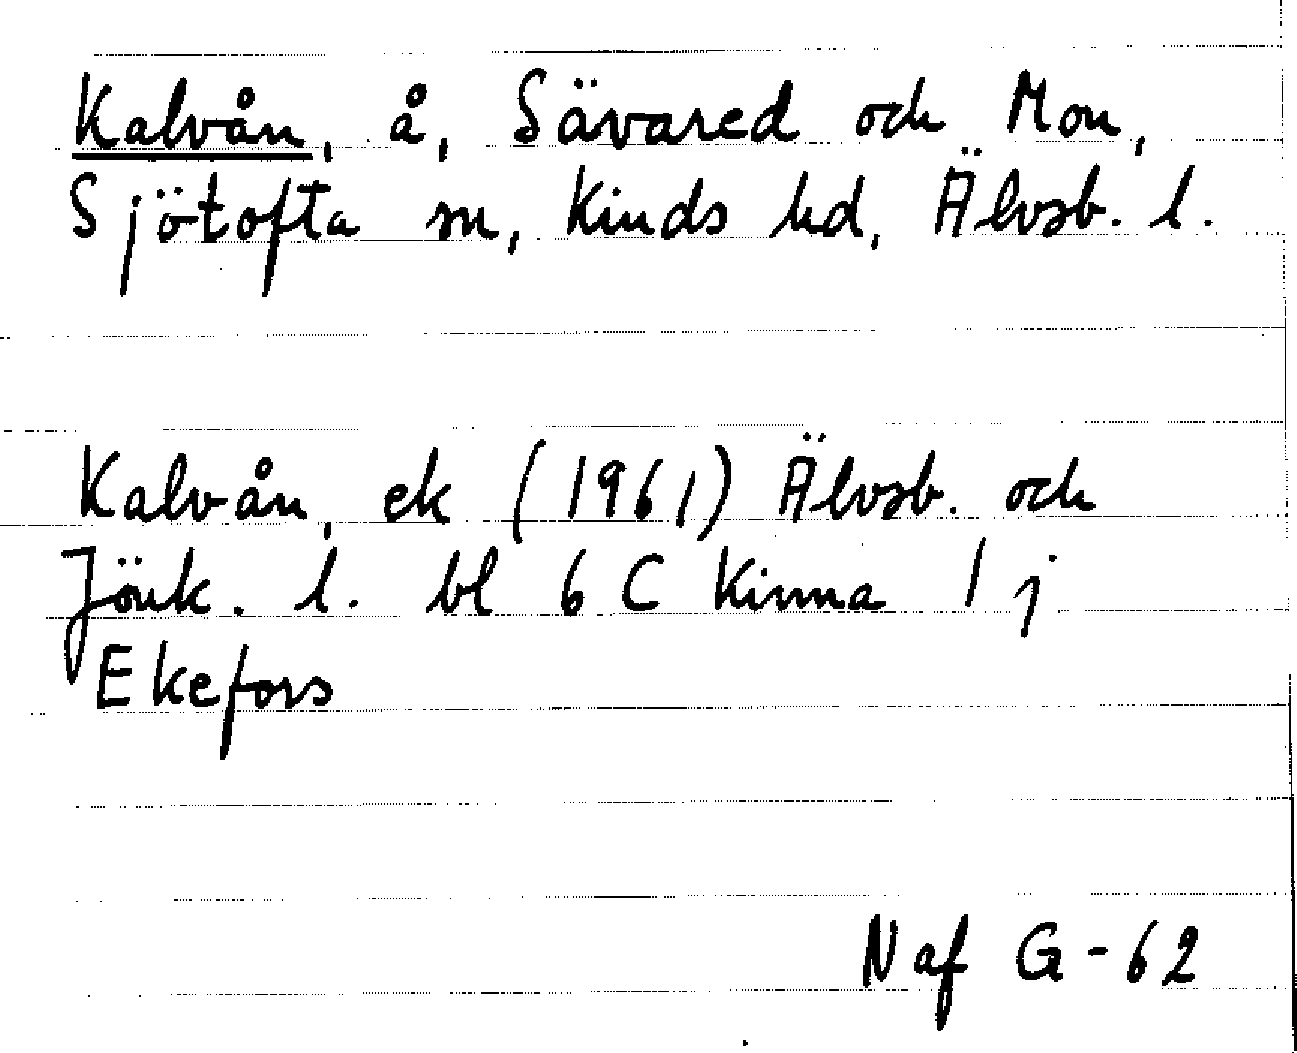 Kalvån, å, Sävared och Mon,
Sjötofta sn, Kinds hd, Älvsb. l.
Kalvån, ek (1961) Älvsb. och
Jönk. l. bl 6 C Kinna 1 j
Ekefors
N af G-62